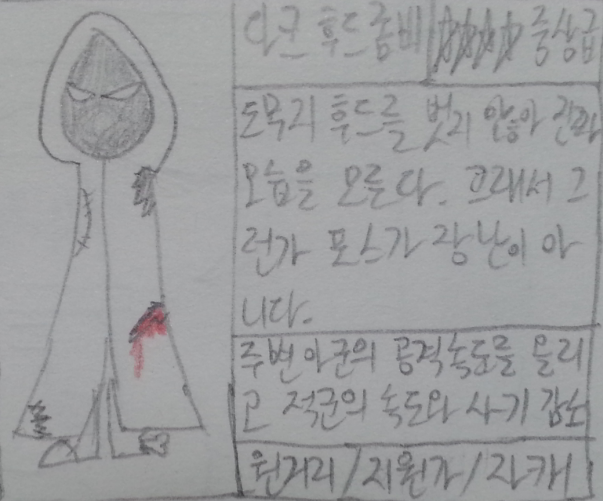 다크 후드좀비 ☆☆☆☆ 중상급
도무지 후드를 벗지 않아 진짜
모습을 모른다. 그래서 그
런가 포스가 장난이 아
니다.
주변아군의 공격속도를 올리
고 적군의 속도와 사기 감소
원거리/지원가/자캐